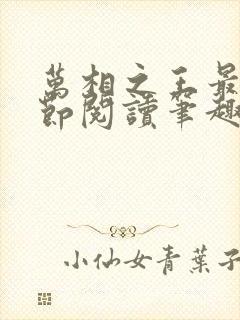 萬相之王最
節閱讀筆趣
小仙女青葉子